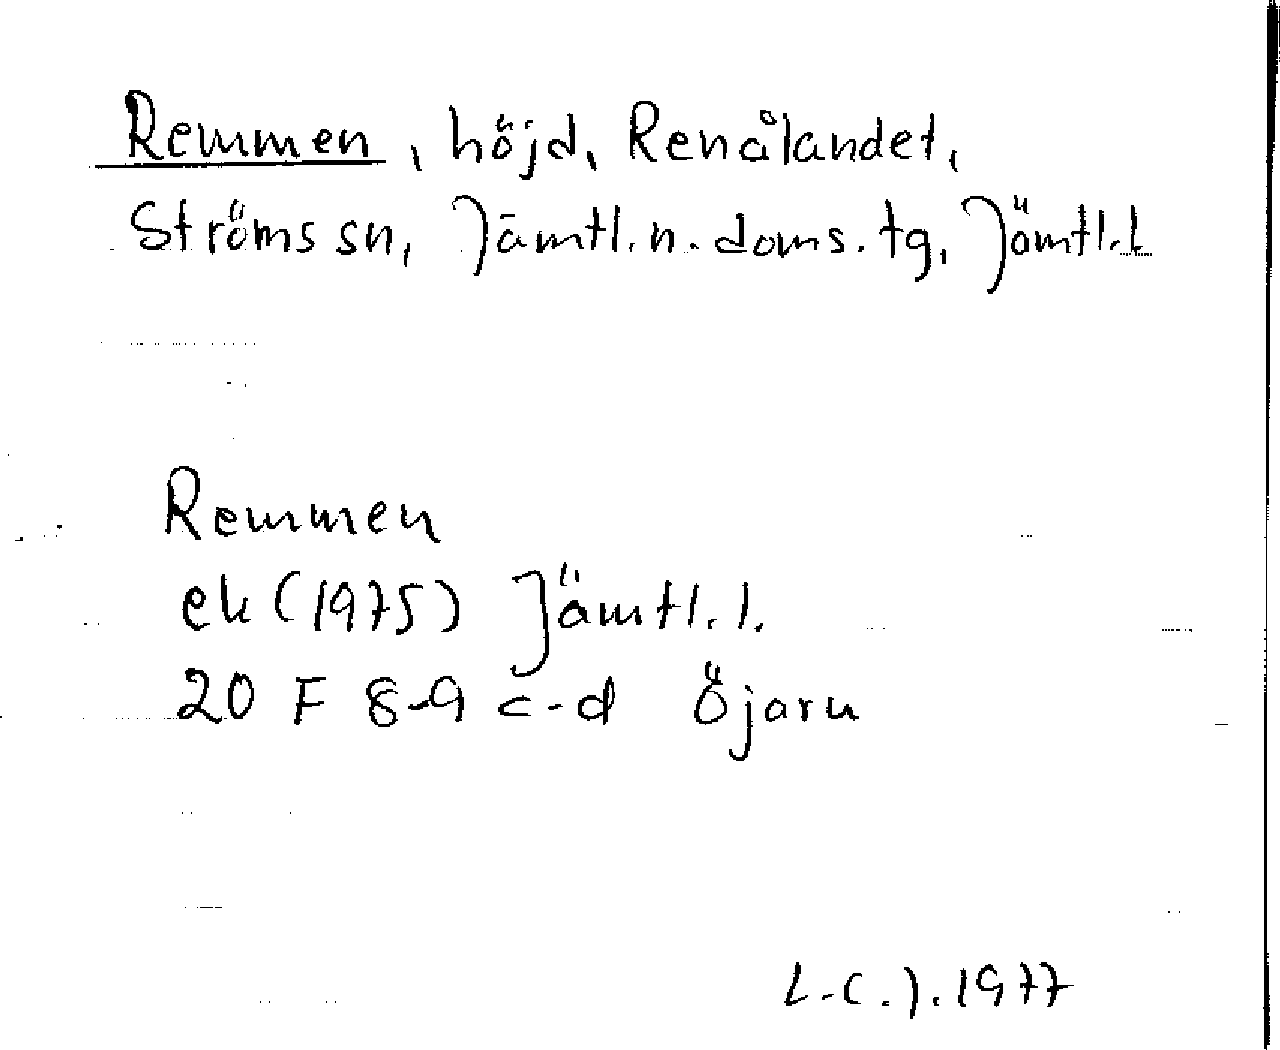 Remmen, höjd, Renålandet,
Ströms sn, Jämtl. n. doms. tg, Jämtl. l.
Remmen
ek (1975) Jämtl. l.
20 F 8-9 c-d Öjarn
L-C. J. 1977